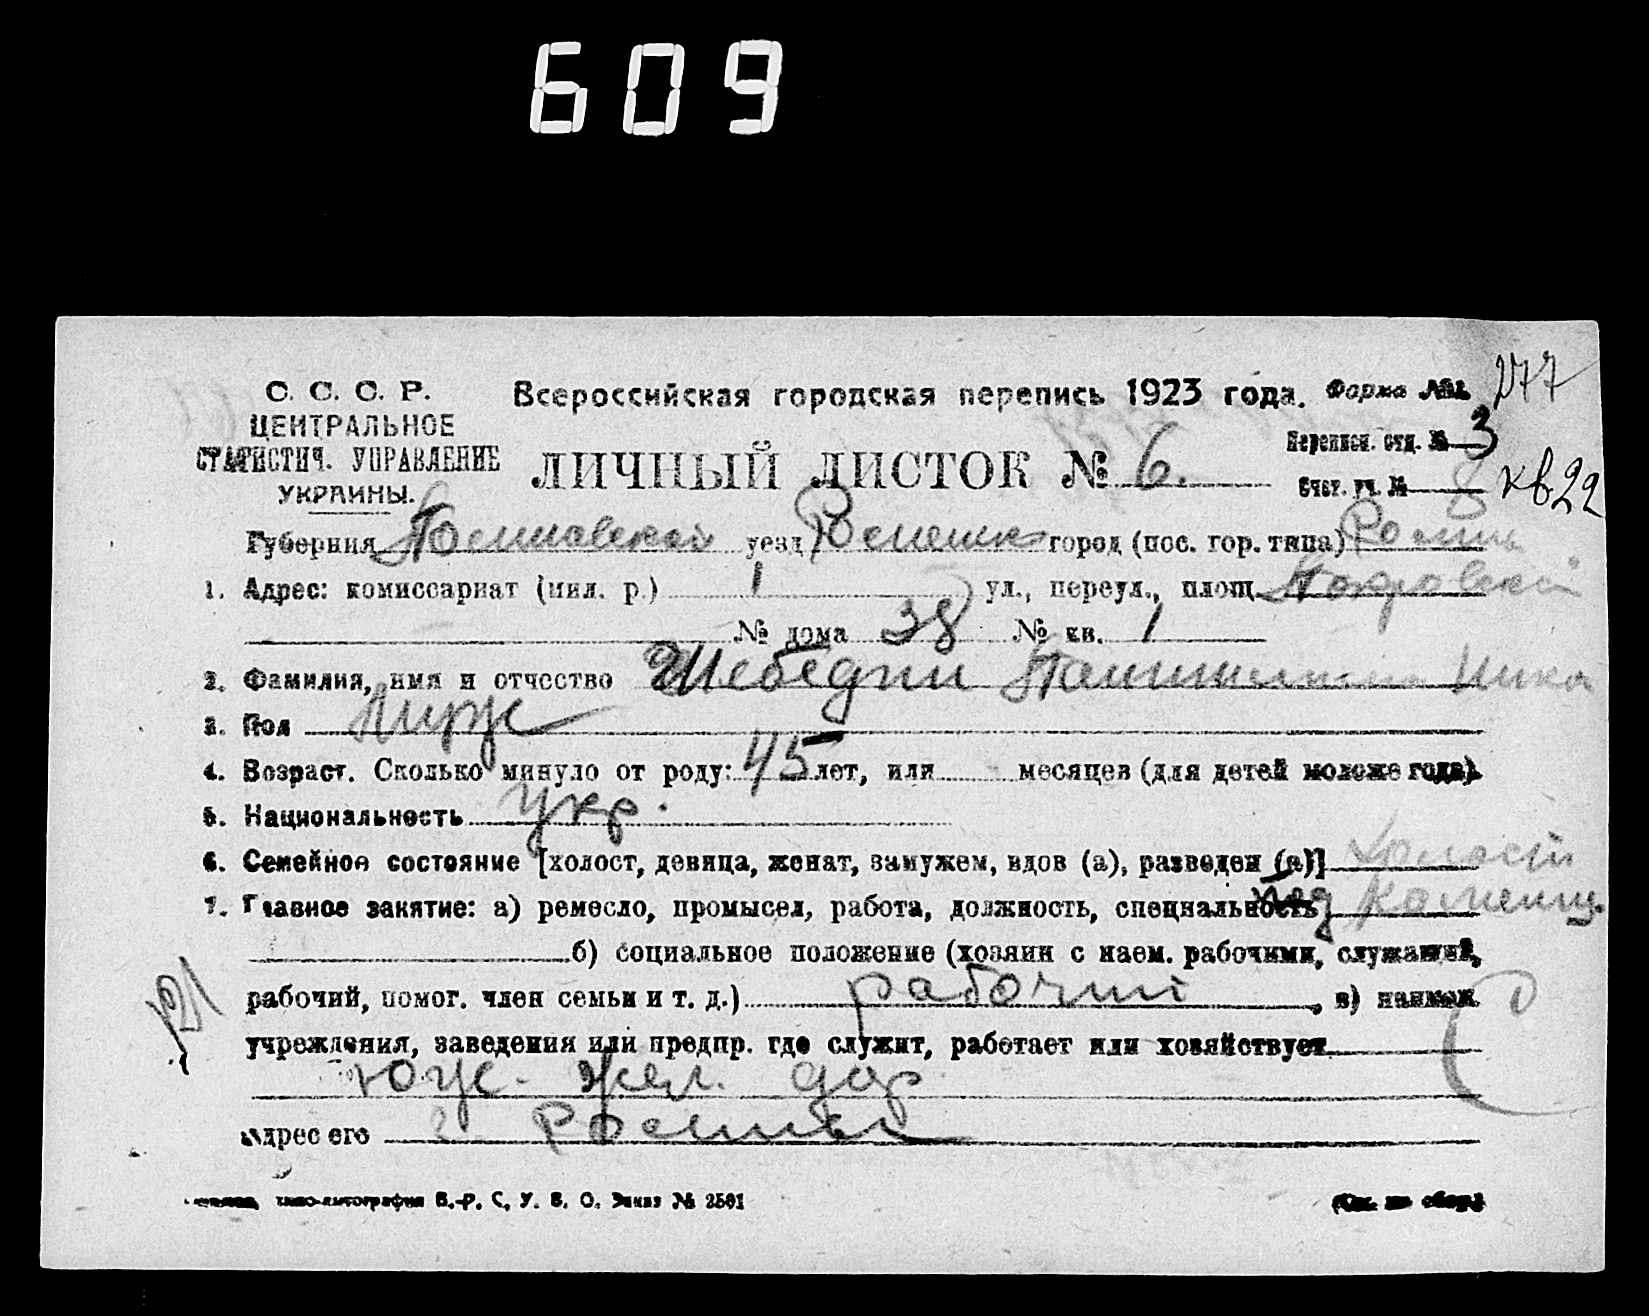 609
С. С. С. Р.
ЦЕНТРАЛЬНОЕ
СТАТИСТИЧ. УПРАВЛЕНИЕ
УКРАИНЫ.
Всероссийская городская перепись 1923 года. Форма №
277
ЛИЧНЫЙ ЛИСТОК № 6.
Переписн. отд. № 3
Счет. уч. № 8 кв 22
Губерния Полтавской уезд Роменск город (пос. гор. типа) Ромны
1. Адрес: комиссариат (мил. р.) 1 ул., переул., площ. Покровской
№ дома 38 № кв. 1
2. Фамилия, имя и отчество Шебедин
3. Пол Мужс
4. Возраст. Сколько минуло от роду: 45 лет, или месяцев (для детей моложе года).
5. Национальность Укр.
6. Семейное состояние [холост, девица, женат, замужем, вдов (а), разведен (а)] холост
7. Главное занятие: а) ремесло, промысел, работа, должность, специальность
б) социальное положение (хозяин с наем. рабочими, служащий,
рабочий, помог. член семьи и т. д.) рабочий, в) наимен.
учреждения, заведения или предпр. где служит, работает или хозяйствует
Юж. жел. дор
Адрес его г Ромны
типо-литография В.-Р. С. У. В. О. Заказ № 2501
(См. на обор.)